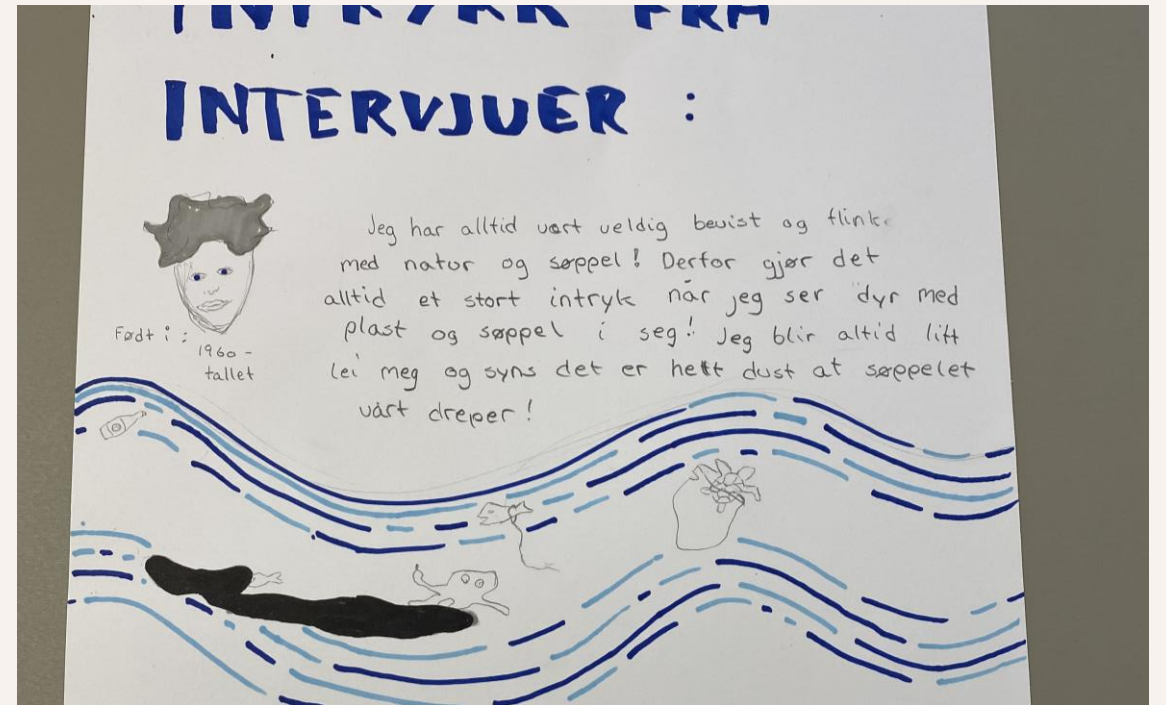 INTRYKK FRA
INTERVJUER :
Jeg har alltid vært veldig bevist og flink
med natur og søppel! Derfor gjør det
alltid et stort intryk når jeg ser dyr med
plast og søppel i seg! Jeg blir altid litt
lei meg og syns det er helt dust at søppelet
vårt dreper!
Født i :
1960-
tallet